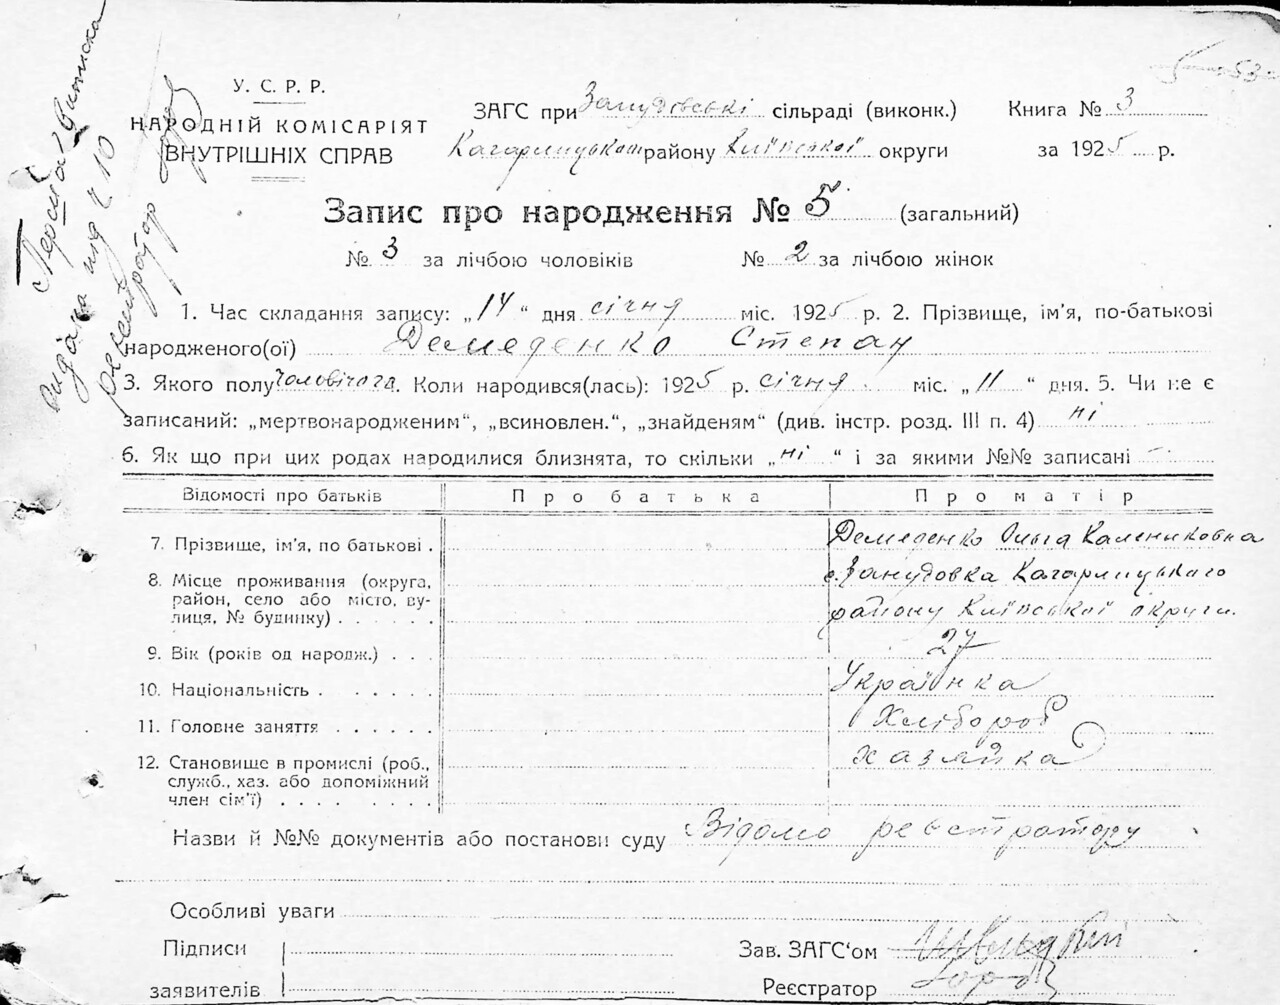 Перша виписка
видана під ч 10
реєстратор
53
У. С. Р. Р.
НАРОДНІЙ КОМІСАРІЯТ
ВНУТРІШНІХ СПРАВ
ЗАГС при Занудовські сільраді (виконк.) Книга № 3
Кагарлицького району Київської округи за 1925 р.
Запис про народження № 5 (загальний)
№ 3 за лічбою чоловіків № 2 за лічбою жінок
1. Час складання запису: „14“ дня січня міс. 1925 р. 2. Прізвище, ім'я, по-батькові
народженого(ої) Демеденко Степан
3. Якого полу чоловічого. Коли народився(лась): 1925 р. січня міс. „11“ дня. 5. Чи не є
записаний: „мертвонародженим“, „всиновлен.“, „знайденям“ (див. інстр. розд. III п. 4) ні
6. Як що при цих родах народилися близнята, то скільки „ні“ і за якими №№ записані —
Відомості про батьків Про батька Про матір
7. Прізвище, ім'я, по батькові . Демеденко Ольга Калениковна
8. Місце проживання (округа, с. Занудовка Кагарлицького
район, село або місто, ву- району Київської округи.
лиця, № будинку) . . . . . .
9. Вік (років од народж.) . . . 27
10. Національність . . . . . . Українка
11. Головне заняття . . . . . . Хлібороб
12. Становище в промислі (роб., хазяйка
служб., хаз. або допоміжний
член сім'ї) . . . . . . . .
Назви й №№ документів або постанови суду Відомо реєстратору
Особливі уваги
Підписи
заявителів
Зав. ЗАГС‘ом
Реєстратор